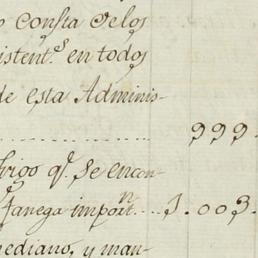 consta de los
sistent.ˢ en todos
de esta Adminis-
999.
trigo q.ᵉ se encon-
fanega import.ⁿ 1.003.
mediano, y man-